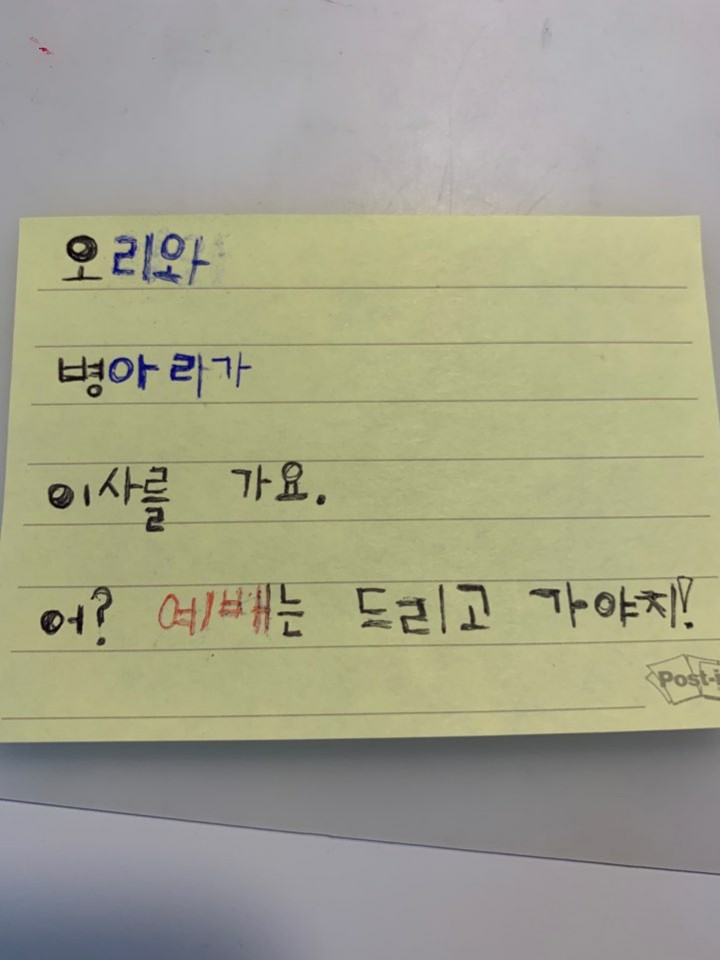 오리와
병아리가
이사를 가요.
어? 예배는 드리고 가야지!
Post-i